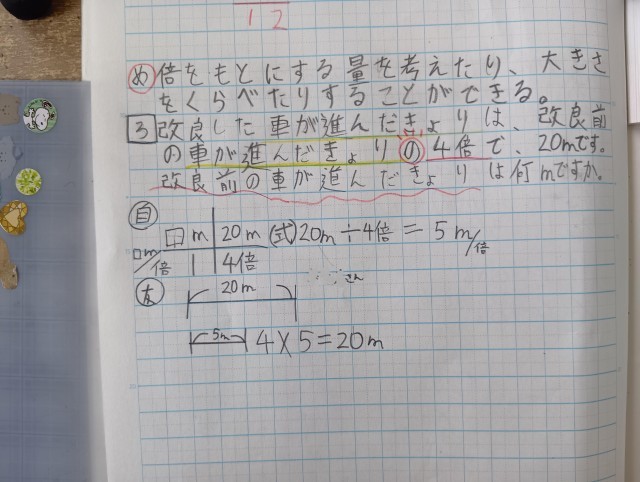 12
め 倍をもとにする量を考えたり、大きさ
をくらべたりすることができる。
3 改良した車が進んだきょりは、改良前
の車が進んだきょりの4倍で、20mです。
改良前の車が進んだきょりは何mですか。
自
□m 20m (式)20m÷4倍=5m/倍
□m/倍 1 4倍
さん
友 20m
5m 4×5=20m